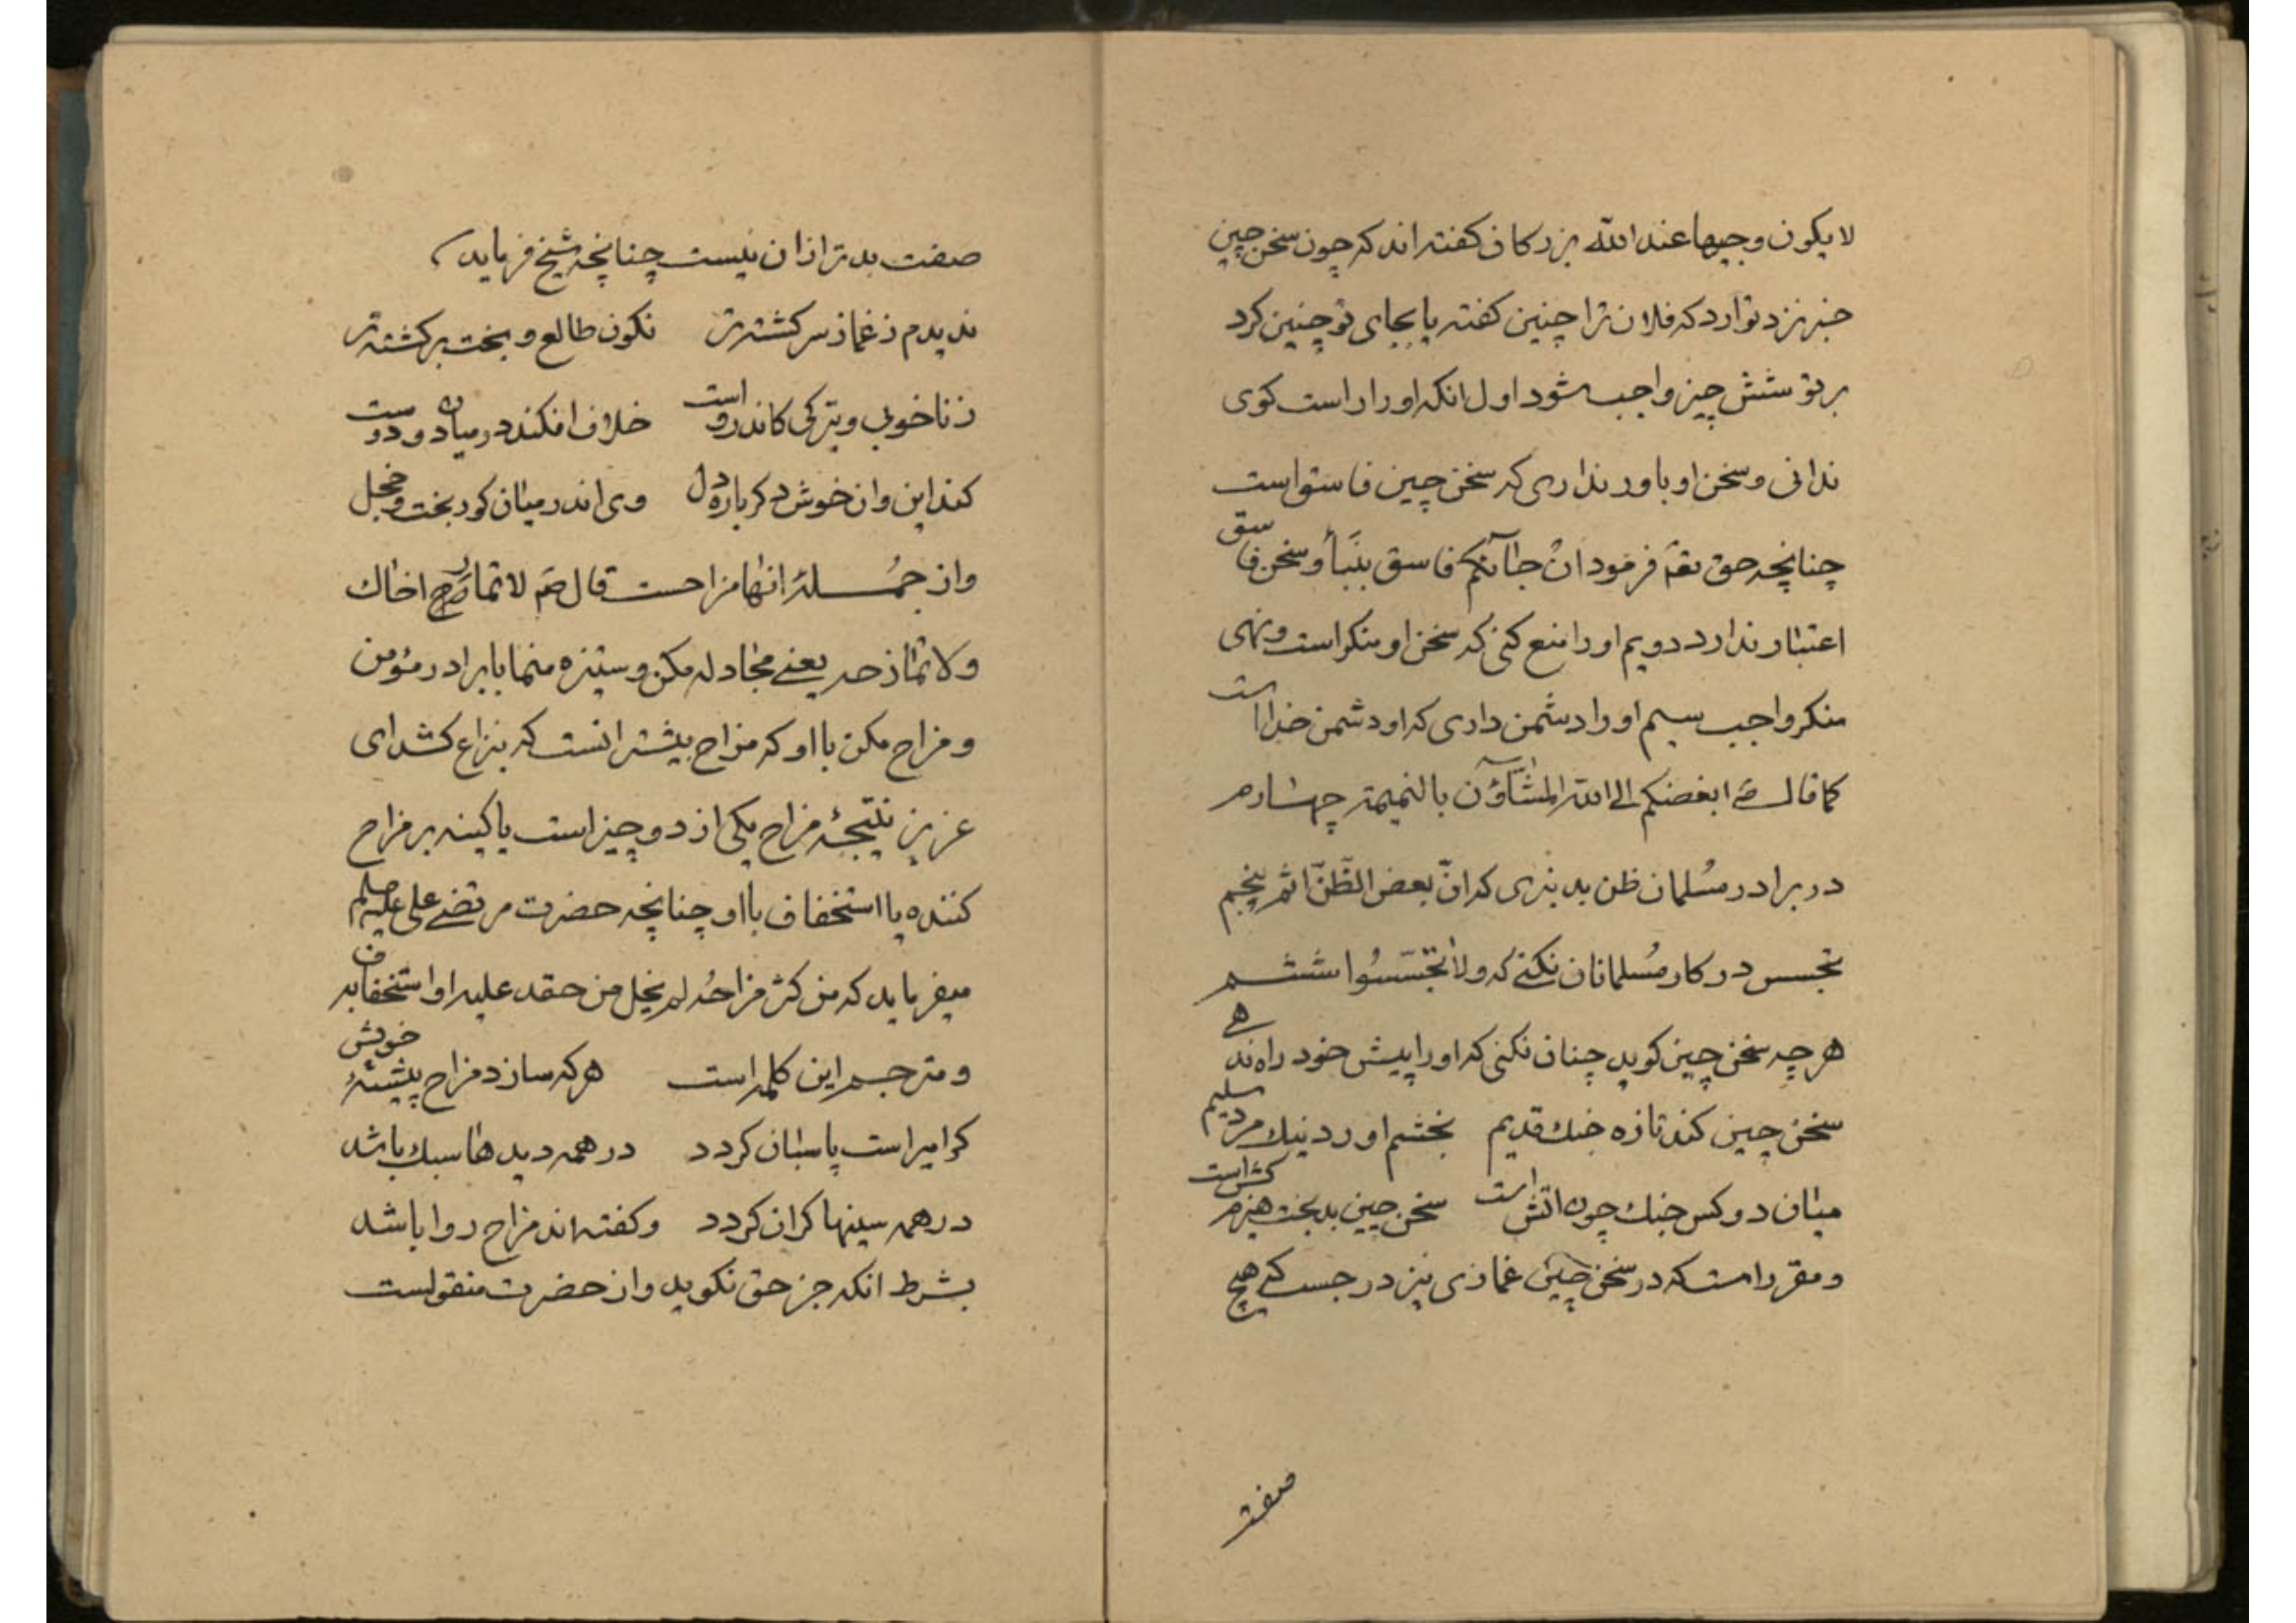 لا یکون وجیها عند الله بزرکان کفته اند که چون سخن چین
خبر نزد تو آرد که فلان ترا چنین کفته یا بجای تو چنین کرد
بر تو شش چیز واجب شود اول انکه او را راست کوی
ندانی و سخن او باور نداری که سخن چین فاسق است
چنانچه حق تعه فرمود انْ جاَآئکم فاسق بنَبَأ و سخن فاسق
اعتبار ندارد دویم او را منع کنی که سخن او منکر است و نهی
منکر واجب سیم او را دشمن داری که او دشمن خدا است
کما قال ابغضکم الی الله المشّاؤن بالنمیمة چهارم
در برادر مُسلمان ظن بد نبری که انّ بعض الظّنّ اثم پنجم
تجسس در کار مُسلمانان نکنے که ولا تجسّسُوا ششم
هر چه سخن چین کوید چنان نکنی که او را پیش خود راه ندهے
سخن چین کند تازه جنك قدیم   بخشم اورد نیك مرد سلیم
میان دو کس جنك چون اتش است   سخن چین بدبخت هیزم کش است
و مقرر است که در سخن چینی غمازی نیز درجست که هیچ
صفت
صفت بدتر از ان نیست چنانچه شیخ فرماید
ندیدم ز غماز سرکشته تر   نکون طالع و بخت برکشته تر
ز ناخوبی و تیرکی کاندرو است   خلاف افکند در میان دو دوست
کند این و ان خوش دکر باره دل   وی اندر میان کوربخت و خجل
و از جمُلهٔ انها مزاحست قال صَم لا تمار اخاك
ولا تمازحه یعنے مجادله مکن و ستیزه منما با برادر مؤمن
و مزاح مکن با او که مزاح بیشتر انست که بنزاع کشد ای
عزیز نتیجهٔ مزاح یکی از دو چیز است یا کینه بر مزاح
کننده یا استخفاف با او چنانچه حضرت مرتضے علی
میفرماید که من کثر مزاحُه لم یخل من حقد علیه او استخفاف به
و مترجم این کلمه است   هر که سازد مزاح پیشهٔ خویش
کر امیر است پاسبان کردد   در همه دیدها سبك باشد
در همه سینها کران کردد   و کفته اند مزاح روا باشد
بشرط انکه جز حق نکوید و از حضرت منقولست